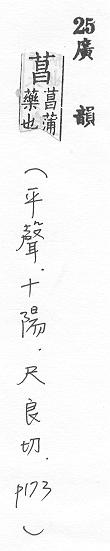 25廣韻
菖菖蒲藥也
(平聲.十陽.尺良切.p173)